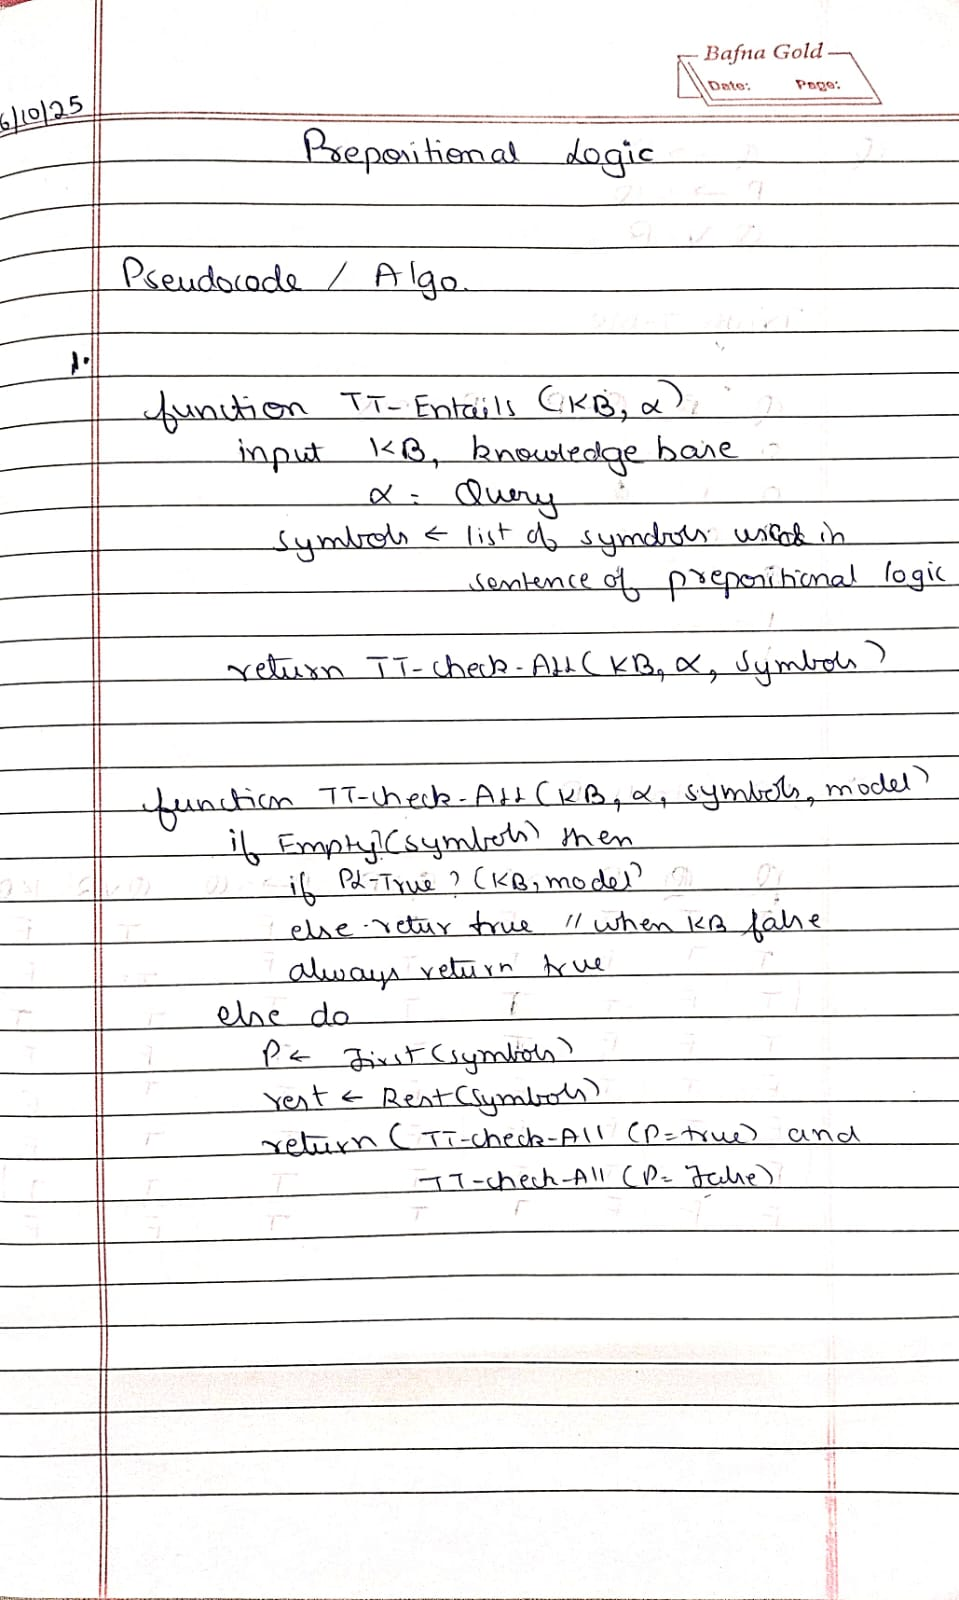 Bafna Gold
Date: Page:
6/10/25
Prepositional Logic
Pseudocode / Algo.
1.
function TT-Entails (KB, α)
input KB, knowledge base
α = Query
symbols ← list of symbols in
sentence of prepositional logic
return TT-check-All (KB, α, symbols)
function TT-check-All (KB, α, symbols, model)
if Empty? (symbols) then
if PL-True ? (KB, model)
else retur true // when KB false
always return true
else do
P ← First (symbols)
rest ← Rest (symbols)
return ( TT-check-All (P=true) and
TT-check-All (P= False)